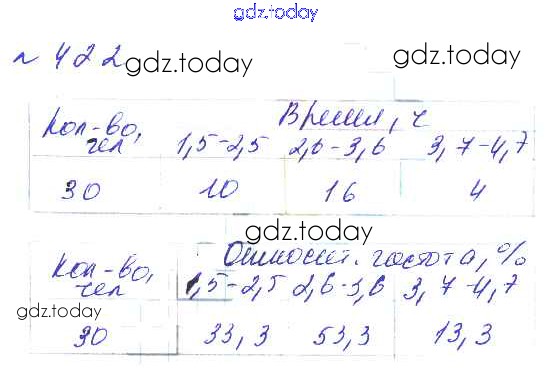 gdz.today
№ 422 gdz.today gdz.today
Кол-во, Время, ч
чел 1,5-2,5 2,6-3,6 3,7-4,7
30 10 16 4
gdz.today
Кол-во, Относит. частота, %
чел 1,5-2,5 2,6-3,6 3,7-4,7
gdz.today gdz.today
30 33,3 53,3 13,3